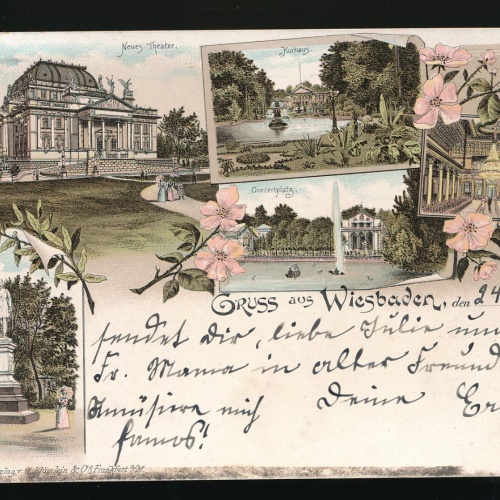 Neues Theater.
Kurhaus.
Concertplatz.
Gruss aus Wiesbaden, den 24
sendet Dir, liebe Julie un
Fr. Mama in alter Freund
Amüsiere mich Deine Er
famos!
& Co Frankfurt a/M